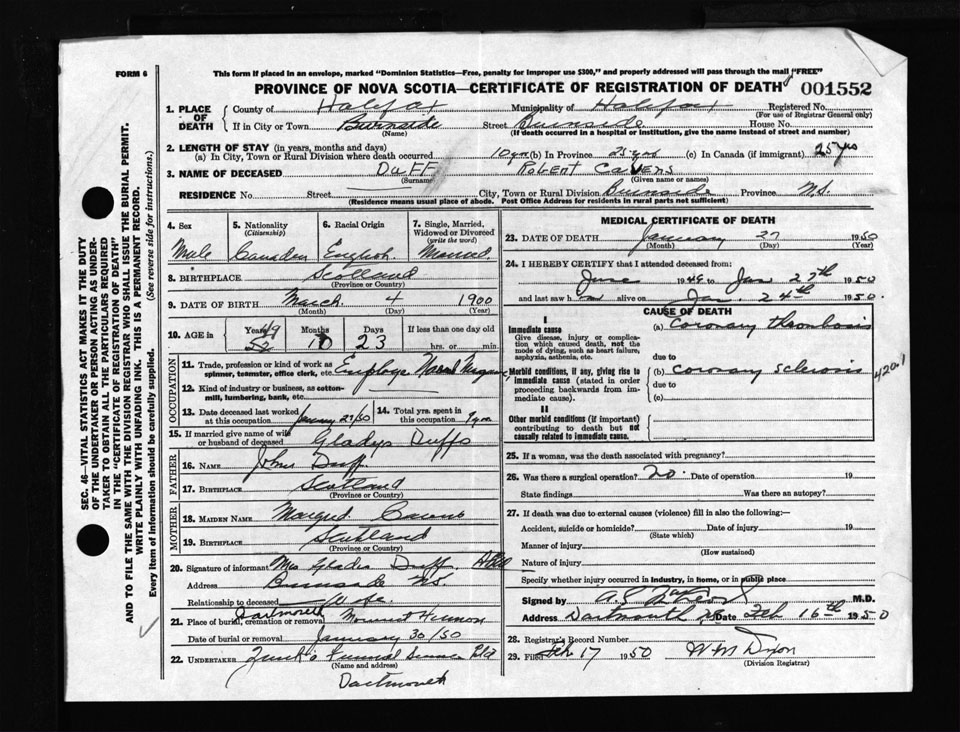 FORM 6
This form if placed in an envelope, marked "Dominion Statistics—Free, penalty for improper use $300," and properly addressed will pass through the mail "FREE"
PROVINCE OF NOVA SCOTIA—CERTIFICATE OF REGISTRATION OF DEATH 001552
1. PLACE OF DEATH { County of Halifax Municipality of Halifax Registered No.
(For use of Registrar General only)
If in City or Town Burnside Street Burnside House No.
(Name) (If death occurred in a hospital or institution, give the name instead of street and number)
2. LENGTH OF STAY (in years, months and days)
(a) In City, Town or Rural Division where death occurred 10 yrs (b) In Province 25 yrs (c) In Canada (if immigrant) 25 yrs
3. NAME OF DECEASED Duff Robert Cavens
(Surname) (Given name or names)
RESIDENCE No. Street City, Town or Rural Division Burnside Province N.S.
(Residence means usual place of abode. Post Office Address for residents in rural parts not sufficient)
SEC. 46—VITAL STATISTICS ACT MAKES IT THE DUTY
OF THE UNDERTAKER OR PERSON ACTING AS UNDER-
TAKER TO OBTAIN ALL THE PARTICULARS REQUIRED
IN THE "CERTIFICATE OF REGISTRATION OF DEATH"
AND TO FILE THE SAME WITH THE DIVISION REGISTRAR WHO SHALL ISSUE THE BURIAL PERMIT.
WRITE PLAINLY WITH UNFADING INK. THIS IS A PERMANENT RECORD.
Every item of information should be carefully supplied. (See reverse side for instructions.)
4. Sex 5. Nationality (Citizenship) 6. Racial Origin 7. Single, Married, Widowed or Divorced (write the word)
Male Canadian English Married
8. BIRTHPLACE Scotland
(Province or Country)
9. DATE OF BIRTH March 4 1900
(Month) (Day) (Year)
10. AGE in { Years Months Days If less than one day old
49 10 23 hrs. or min.
OCCUPATION
11. Trade, profession or kind of work as spinner, teamster, office clerk, etc. Employee Naval
12. Kind of industry or business, as cotton-mill, lumbering, bank, etc.
13. Date deceased last worked at this occupation January 27/50 14. Total yrs. spent in this occupation 9 yrs
15. If married give name of wife or husband of deceased Gladys Duff
FATHER
16. NAME John Duff
17. BIRTHPLACE Scotland
(Province or Country)
MOTHER
18. MAIDEN NAME Cavens
19. BIRTHPLACE Scotland
(Province or Country)
20. Signature of informant Mrs Gladis Duff
Address Burnside N.S.
Relationship to deceased Wife
Dartmouth
21. Place of burial, cremation or removal Mount Hermon
Date of burial or removal January 30/50
22. UNDERTAKER Funeral Service
(Name and address)
Dartmouth
MEDICAL CERTIFICATE OF DEATH
23. DATE OF DEATH January 27 1950
(Month) (Day) (Year)
24. I HEREBY CERTIFY that I attended deceased from:
June 1949 to Jan 27th 1950
and last saw h alive on Jan. 24th 1950.
CAUSE OF DEATH
I
Immediate cause (a) Coronary thrombosis
Give disease, injury or complica-
tion which caused death, not the
mode of dying, such as heart failure,
asphyxia, asthenia, etc. due to
Morbid conditions, if any, giving rise to (b) Coronary sclerosis 420.1
immediate cause (stated in order due to
proceeding backwards from im-
mediate cause). (c)
II
Other morbid conditions (if important)
contributing to death but not
causally related to immediate cause.
25. If a woman, was the death associated with pregnancy?
26. Was there a surgical operation? No. Date of operation 19
State findings Was there an autopsy?
27. If death was due to external causes (violence) fill in also the following:—
Accident, suicide or homicide? Date of injury 19
(State which)
Manner of injury
(How sustained)
Nature of injury
Specify whether injury occurred in industry, in home, or in public place
Signed by M.D.
Address Dartmouth Date Feb 16th 1950
28. Registrar's Record Number
29. Filed Feb 17 1950 W M Dixon
(Division Registrar)